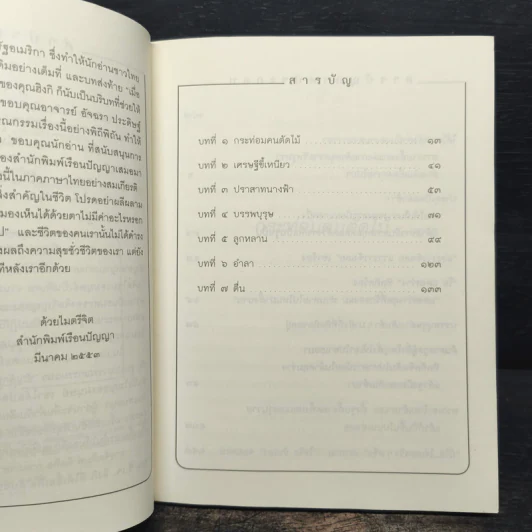 รัฐอเมริกา ซึ่งทำให้นักอ่านชาวไทย
ดิมอย่างเต็มที่ และบทส่งท้าย "เมื่อ
ของคุณฮิงกิ ก็นับเป็นบริบทที่ช่วยให้
ขอบคุณอาจารย์ อัจฉรา ประดิษฐ์
รณกรรมเรื่องนี้อย่างพิถีพิถัน ทำให้
ขอบคุณนักอ่าน ที่สนับสนุนการ
องสำนักพิมพ์เรือนปัญญาเสมอมา
งนี้ในภาคภาษาไทยอย่างสมเกียรติ
สิ่งสำคัญในชีวิต โปรดอย่าลืมถาม
มองเห็นได้ด้วยตาไม่มีค่าอะไรหรอก
ป" และชีวิตของคนเรานั้นไม่ได้ดำรง
งผลถึงความสุขชั่วชีวิตของเรา แต่ยัง
ที่หลังเราอีกด้วย
ด้วยไมตรีจิต
สำนักพิมพ์เรือนปัญญา
มีนาคม ๒๕๕๓
สารบัญ
บทที่ ๑ กระท่อมคนตัดไม้ ๑๓
บทที่ ๒ เศรษฐีขี้เหนียว ๔๑
บทที่ ๓ ปราสาทนางฟ้า ๕๓
บทที่ ๔ บรรพบุรุษ ๗๑
บทที่ ๕ ลูกหลาน ๙๙
บทที่ ๖ อำลา ๑๒๓
บทที่ ๗ ตื่น ๑๓๓